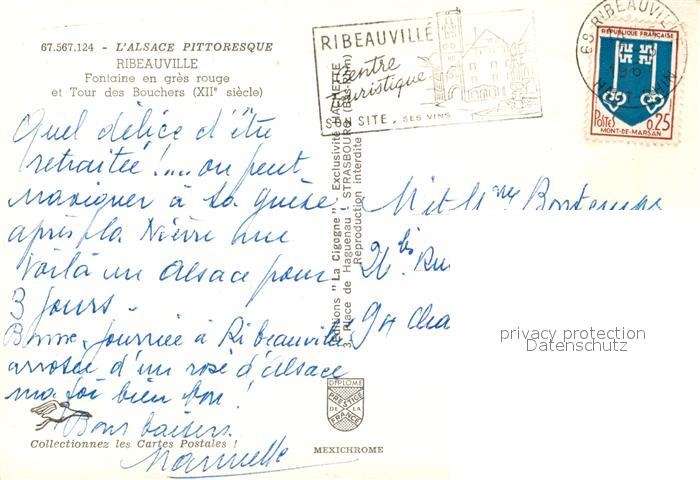 67.567.124 - L'ALSACE PITTORESQUE
RIBEAUVILLE
Fontaine en grès rouge
et Tour des Bouchers (XIIe siècle)
Quel délice d'être
retraitée !.... on peut
naviguer à sa guise
après la Nièvre me
voilà en Alsace pour
3 jours.
Bonne journée à Ribeauvillé
arrosée d'un rosé d'Alsace
ma foi bien bon !
Bons baisers.
Collectionnez les Cartes Postales !
RIBEAUVILLÉ
Centre
touristique
SON SITE, SES VINS
68 RIBEAUVILLE
HAUT-RHIN
REPUBLIQUE FRANÇAISE
POSTES 0,25
MONT-DE-MARSAN
Editions "La Cigogne" - Exclusivité HACHETTE
3, Place de Haguenau - STRASBOURG (Bas-Rhin)
Reproduction interdite
M et Mme Bontemps
26 bis Ru
94 Cha
privacy protection
Datenschutz
DIPLOME
PRESTIGE
DE LA
FRANCE
MEXICHROME